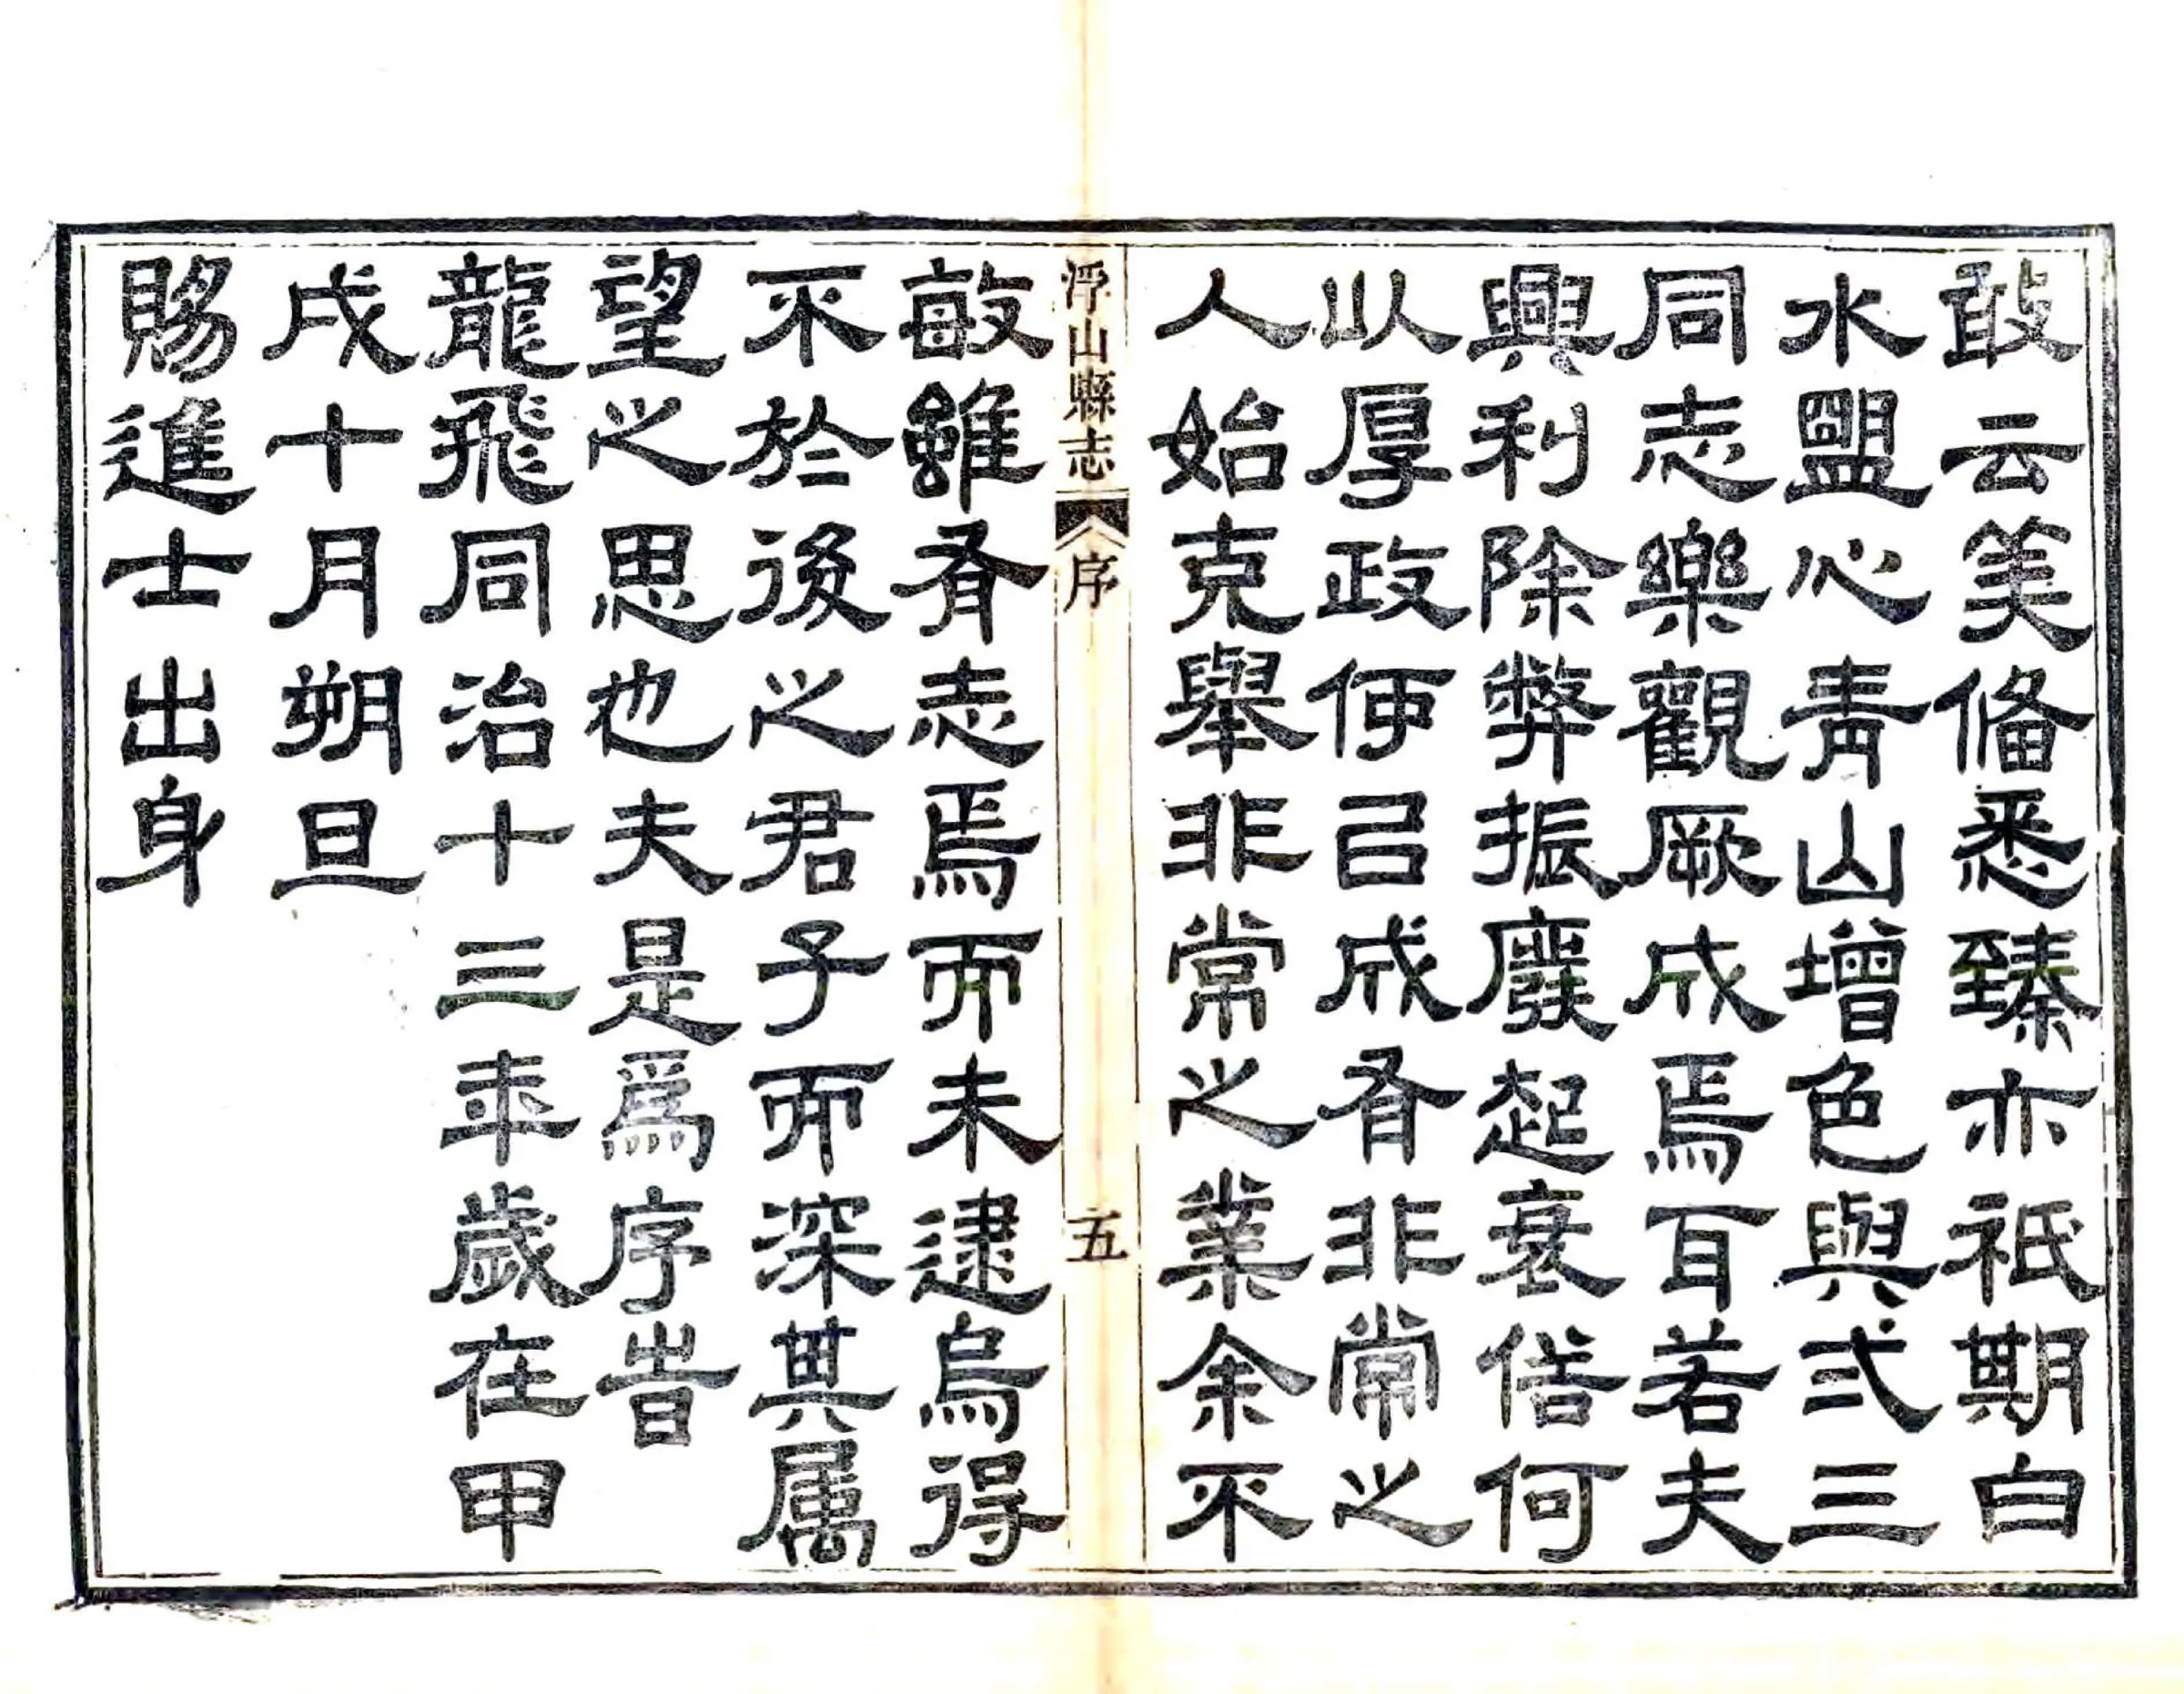 敢云美俻悉臻亦祇期白
水盟心青山增色與弍三
同志樂觀厥成焉耳若夫
興利除弊振廢起衰借何
以厚政使成有非常之
人始克舉非常之業余不
浮山縣志 序 五
敏雖有志焉而未逮烏得
不於後之君子而深其属
望之思也夫是爲序旹
龍飛同治十三年歲在甲
戌十月朔旦
賜進士出身